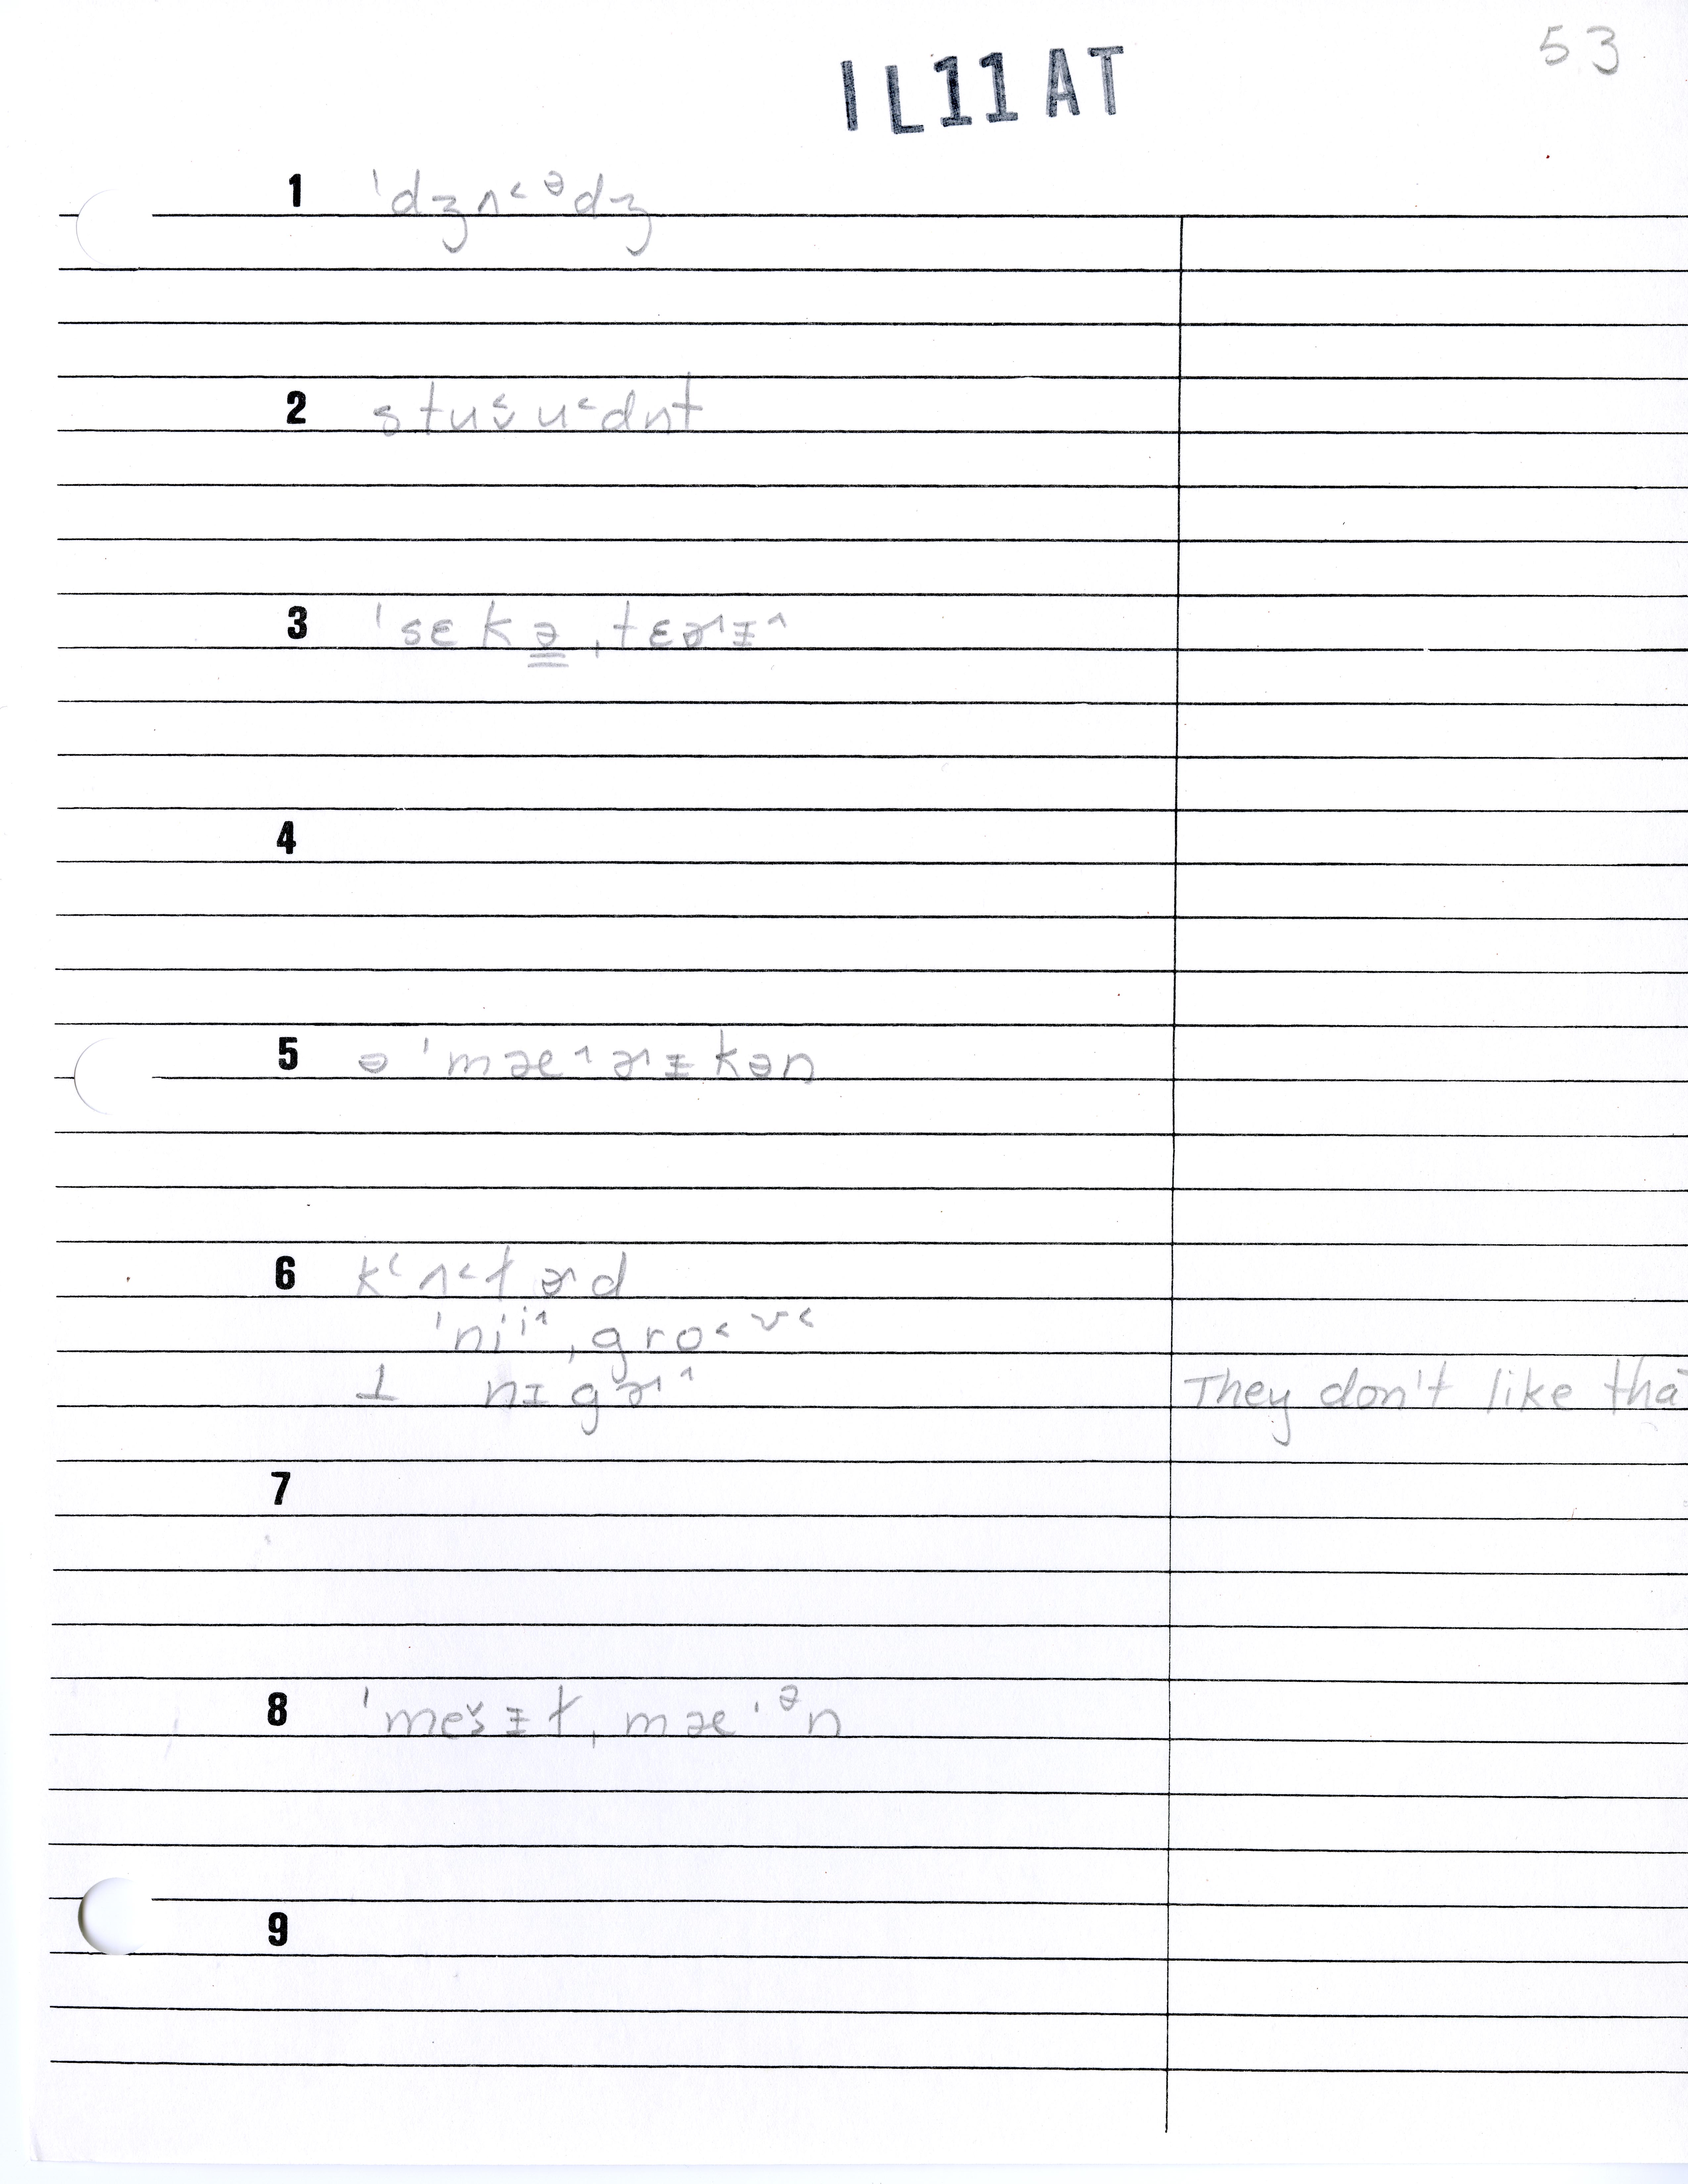 53
IL11AT
1 ˈdʒʌ˂ᵊdʒ
2 stuˬ˂u˂dnt
3 ˈsɛkə̳ˌtɛɚɪ˄
4
5 əˈmæ˄ɚɪkən
6 k‘ʌ˂lɚd
ˈniⁱ˄ˌgro˂ᶷ˂
⊥ nɪgɚ˄
They don't like tha
7
8 ˈmeˬšɪtˌmæ·ᵊn
9